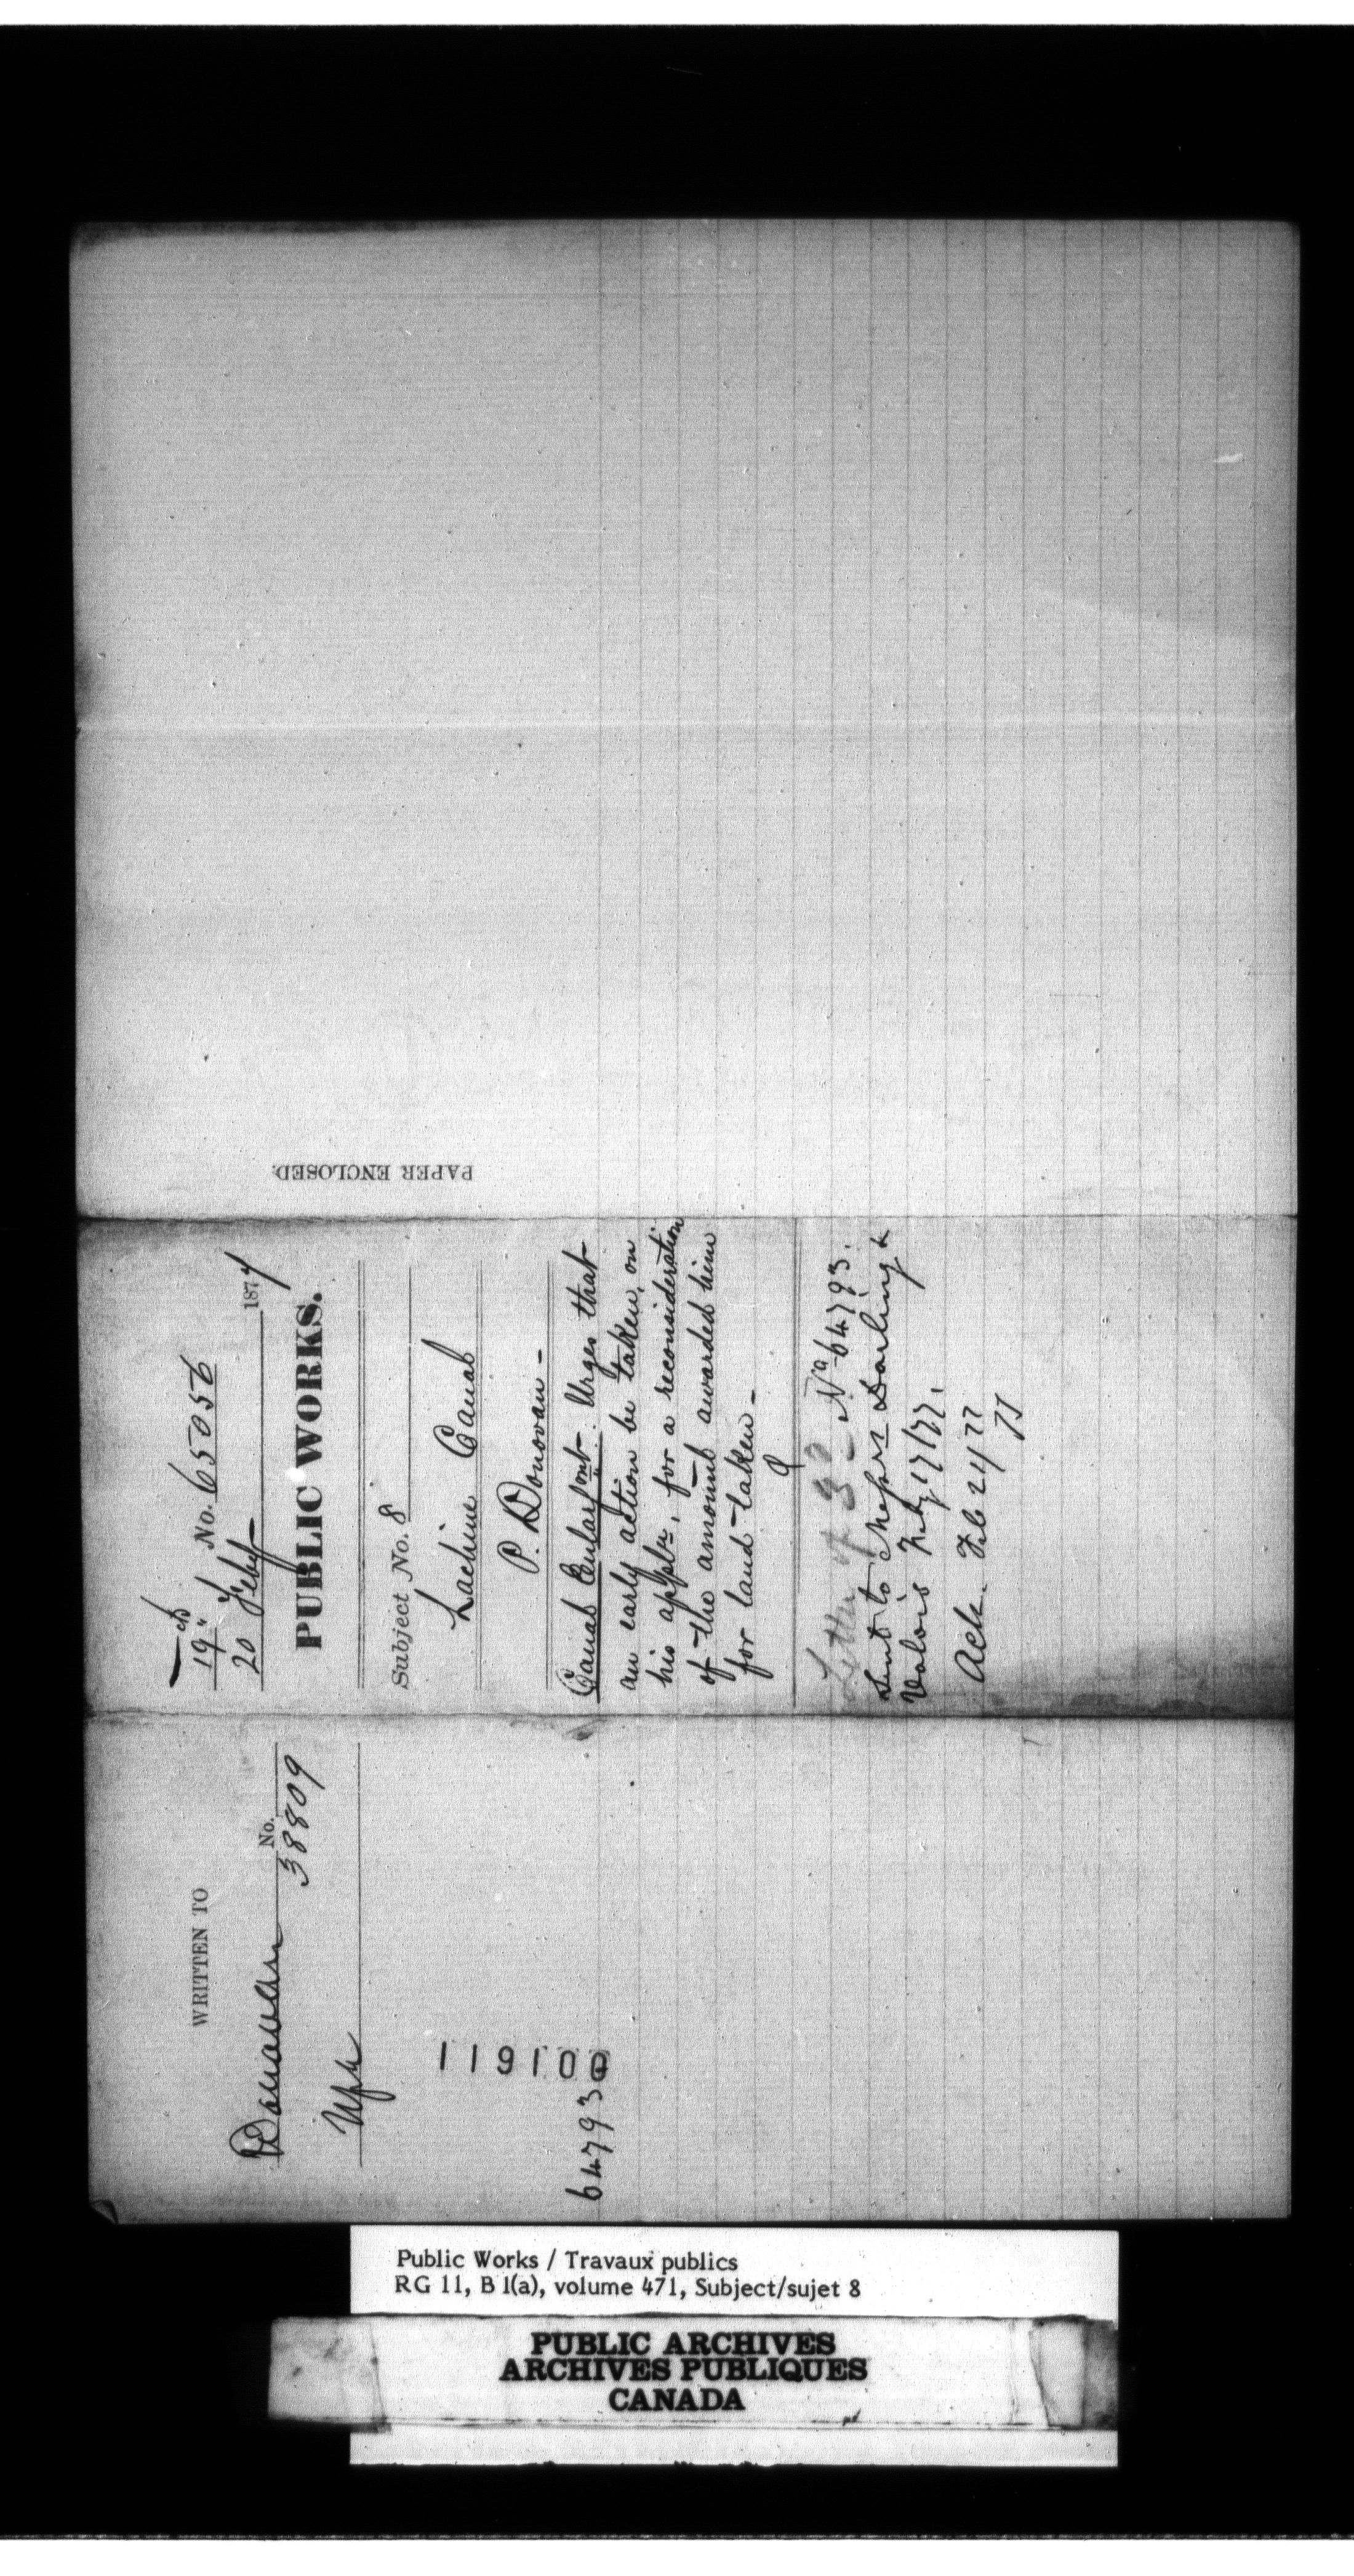 WRITTEN TO
Donovan No. 38809
119100
64793
19th No. 65056
20 Feby 1877
PUBLIC WORKS.
Subject No. 8
Lachine Canal
P. Donovan -
Canal Enlargmt. Urges that
an early action be taken, on
his appln, for a reconsideration
of the amount awarded him
for land taken -
Letter of 3d No 64793.
Sent to Messrs Darling &
Valois Feby 17/77.
Ack. Feb 21/77
PAPER ENCLOSED.
Public Works / Travaux publics
RG 11, B 1(a), volume 471, Subject/sujet 8
PUBLIC ARCHIVES
ARCHIVES PUBLIQUES
CANADA